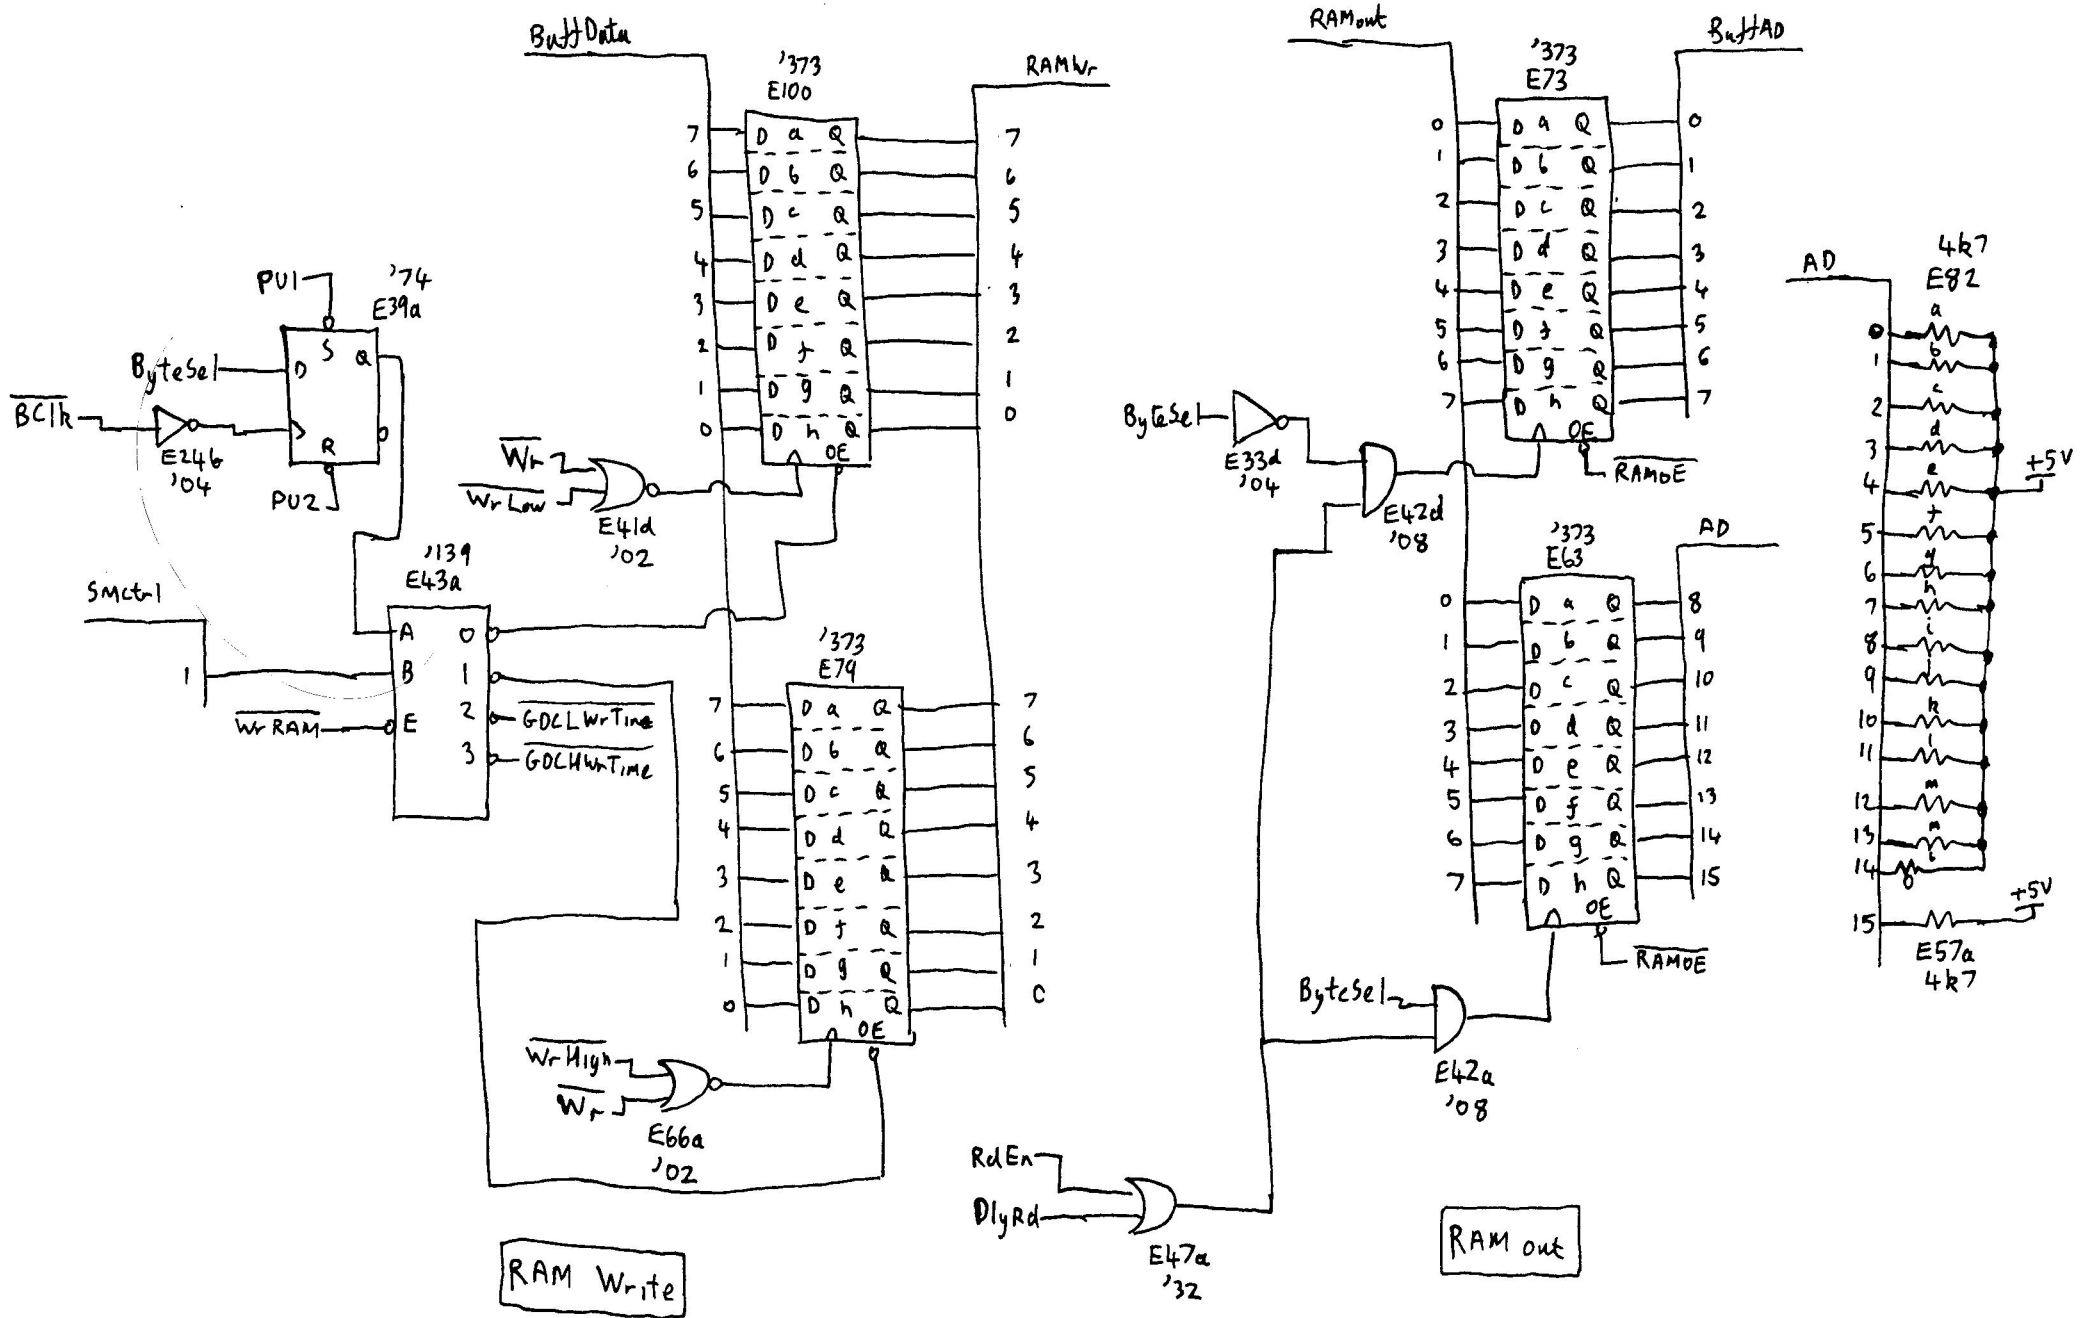 BuffData
'373
E100
RAMWr
7 D a Q 7
6 D b Q 6
5 D c Q 5
4 D d Q 4
3 D e Q 3
2 D f Q 2
1 D g Q 1
0 D h Q 0
OE
PU1
'74
E39a
S
ByteSel D Q
BClk
R
E24b
'04
PU2
Wr
WrLow
E41d
'02
'139
E43a
SMctrl
A 0
1 B 1
WrRAM E 2 GDCLWrTime
3 GDCHWrTime
'373
E79
7 D a Q 7
6 D b Q 6
5 D c Q 5
4 D d Q 4
3 D e Q 3
2 D f Q 2
1 D g Q 1
0 D h Q 0
OE
WrHigh
Wr
E66a
'02
RAM Write
RAMout
'373
E73
BuffAD
0 D a Q 0
1 D b Q 1
2 D c Q 2
3 D d Q 3
4 D e Q 4
5 D f Q 5
6 D g Q 6
7 D h Q 7
OE
RAMOE
ByteSel
E33d
'04
E42d
'08
'373
E63
AD
0 D a Q 8
1 D b Q 9
2 D c Q 10
3 D d Q 11
4 D e Q 12
5 D f Q 13
6 D g Q 14
7 D h Q 15
OE
RAMOE
ByteSel
E42a
'08
RdEn
DlyRd
E47a
'32
RAM out
4k7
E82
AD
0 a
1 b
2 c
3 d
4 e
+5V
5 f
6 g
7 h
8 i
9 j
10 k
11 l
12 m
13 n
14
15
+5V
E57a
4k7